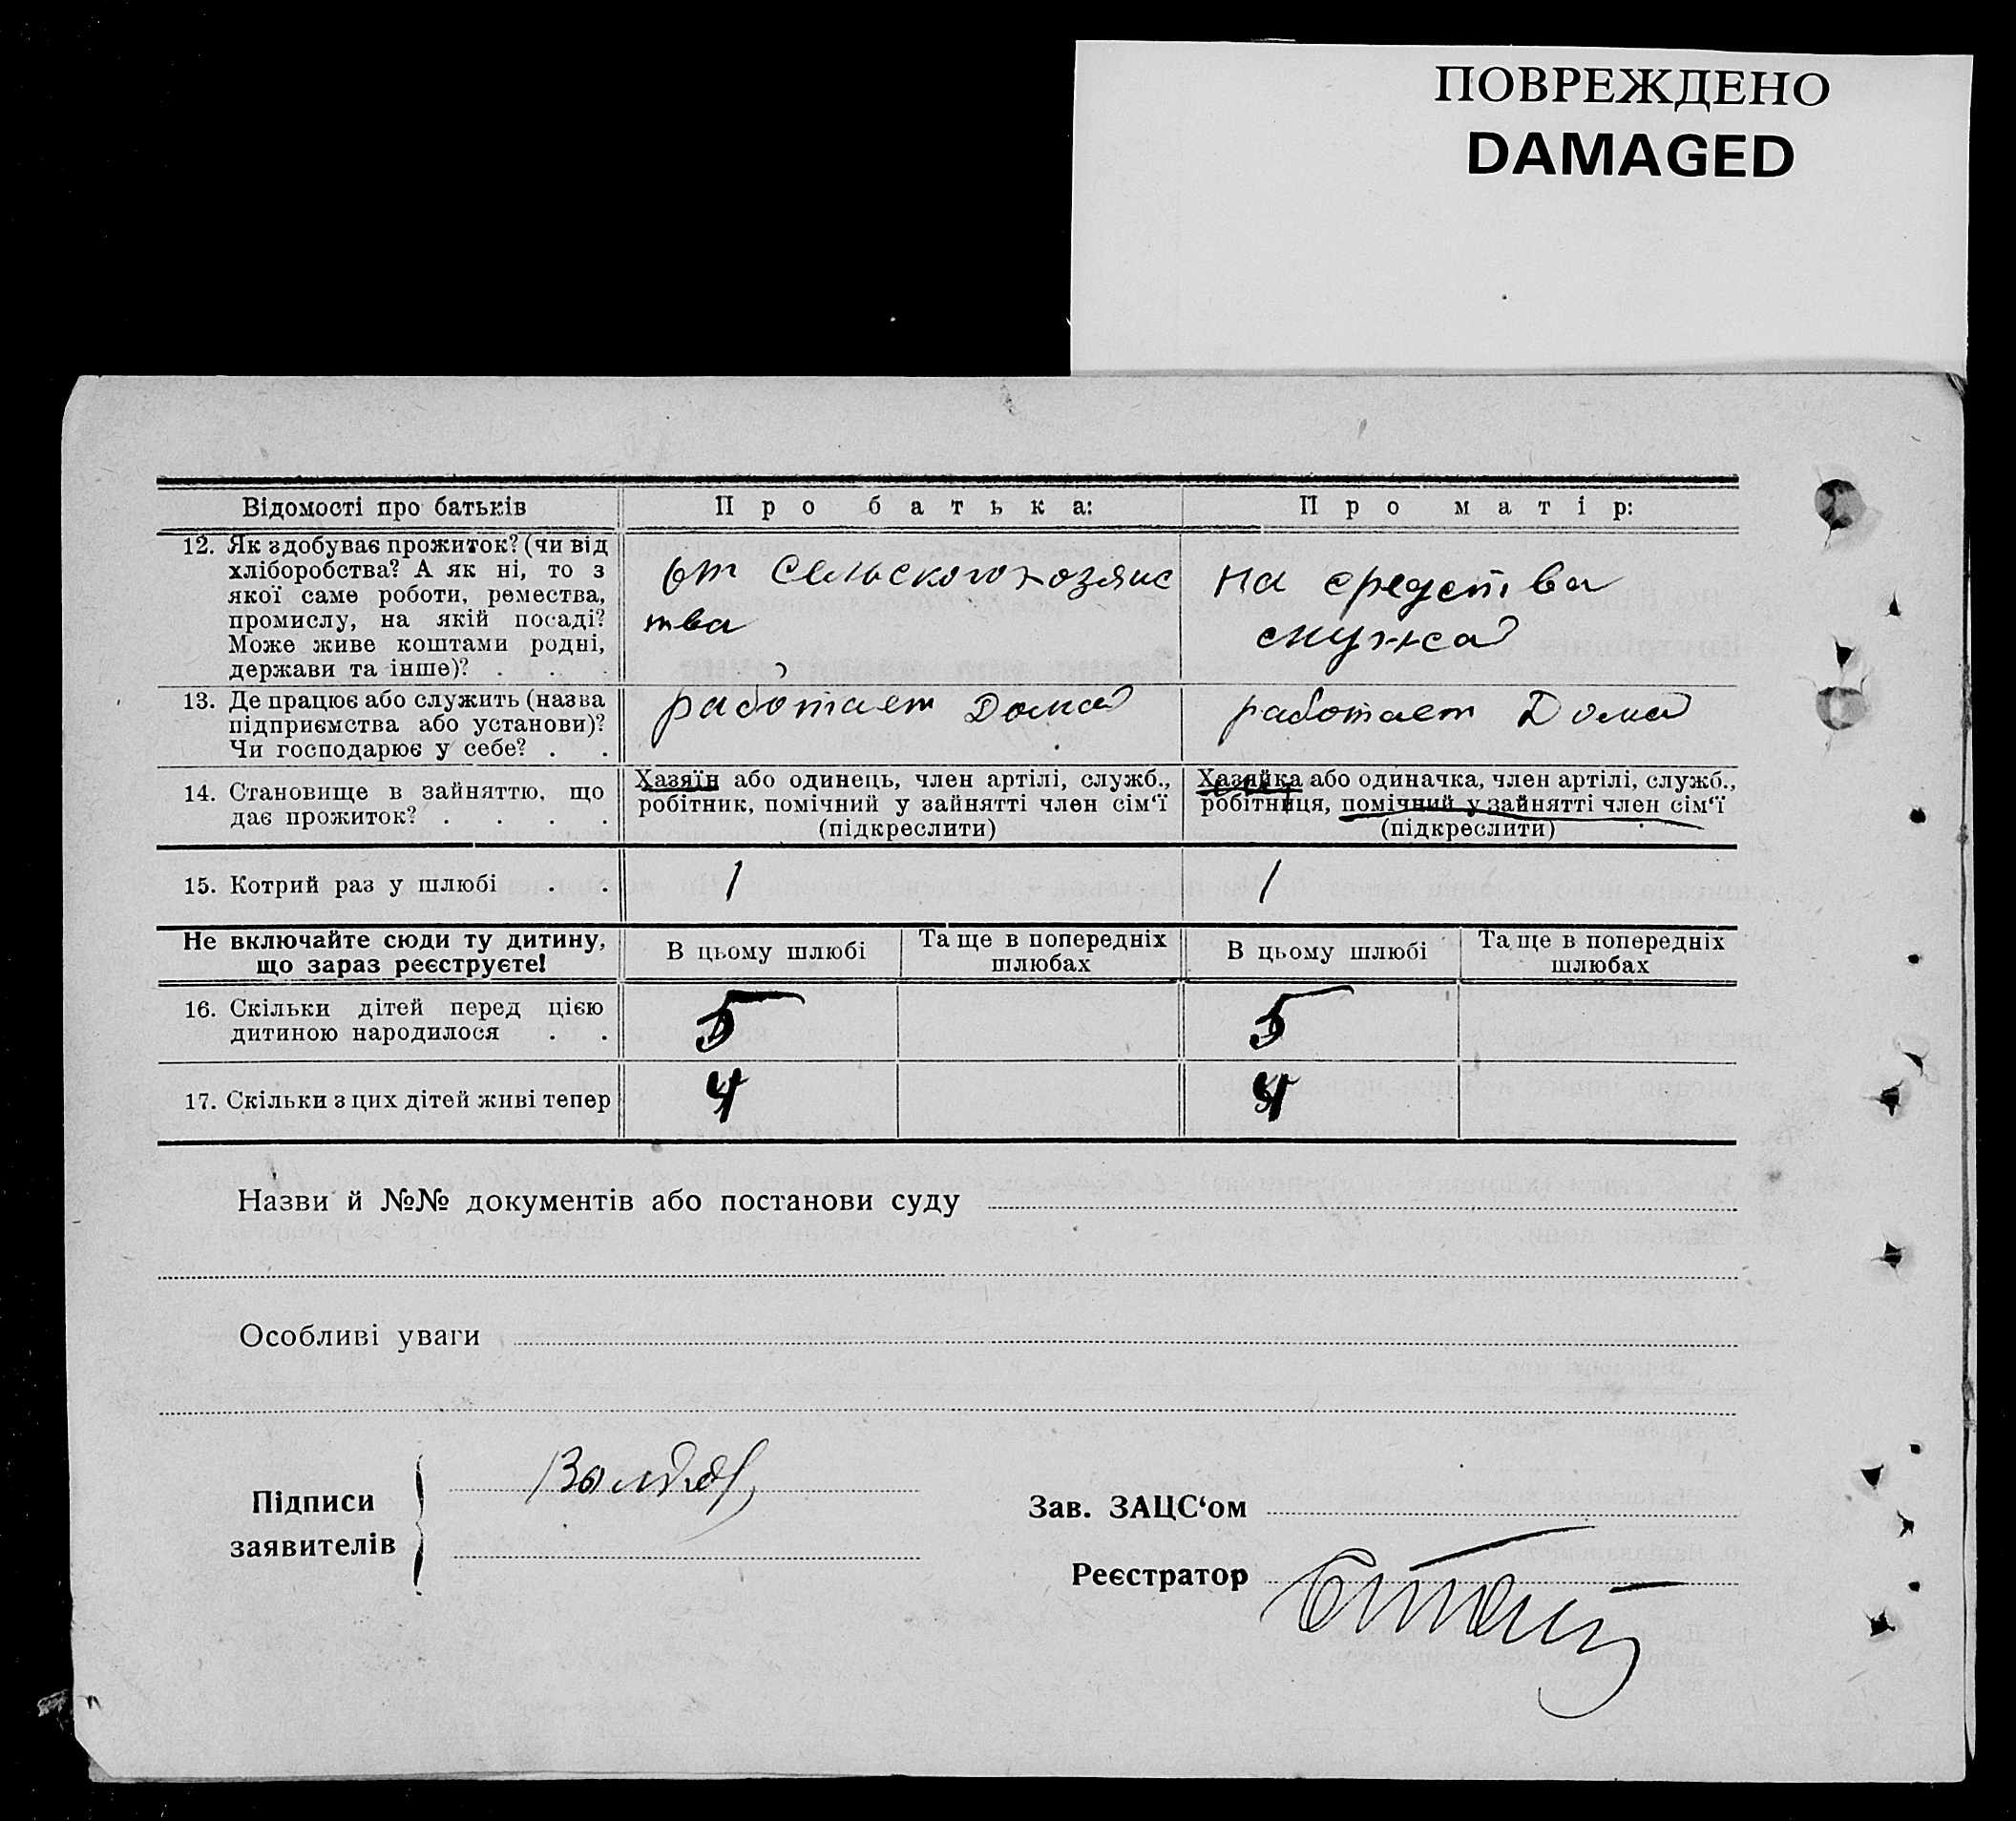 ПОВРЕЖДЕНО
DAMAGED
Відомості про батьків
Про батька:
Про матір:
12. Як здобуває прожиток? (чи від
хліборобства? А як ні, то з
якої саме роботи, ремества,
промислу, на якій посаді?
Може живе коштами родні,
держави та інше)? . . .
от Сельскогохозяис
тва
на средства
мужа
13. Де працює або служить (назва
підприємства або установи)?
Чи господарює у себе? . .
работает Дома
работает Дома
14. Становище в зайняттю, що
дає прожиток? . . . .
Хазяїн або одинець, член артілі, служб.,
робітник, помічний у зайнятті член сім‘ї
(підкреслити)
Хазяйка або одиначка, член артілі, служб.,
робітниця, помічний у зайнятті член сім‘ї
(підкреслити)
15. Котрий раз у шлюбі . .
1
1
Не включайте сюди ту дитину,
що зараз реєструєте!
В цьому шлюбі
Та ще в попередніх
шлюбах
В цьому шлюбі
Та ще в попередніх
шлюбах
16. Скільки дітей перед цією
дитиною народилося . .
5
5
17. Скільки з цих дітей живі тепер
4
4
Назви й №№ документів або постанови суду
Особливі уваги
Підписи
заявителів
Зав. ЗАЦС‘ом
Реєстратор